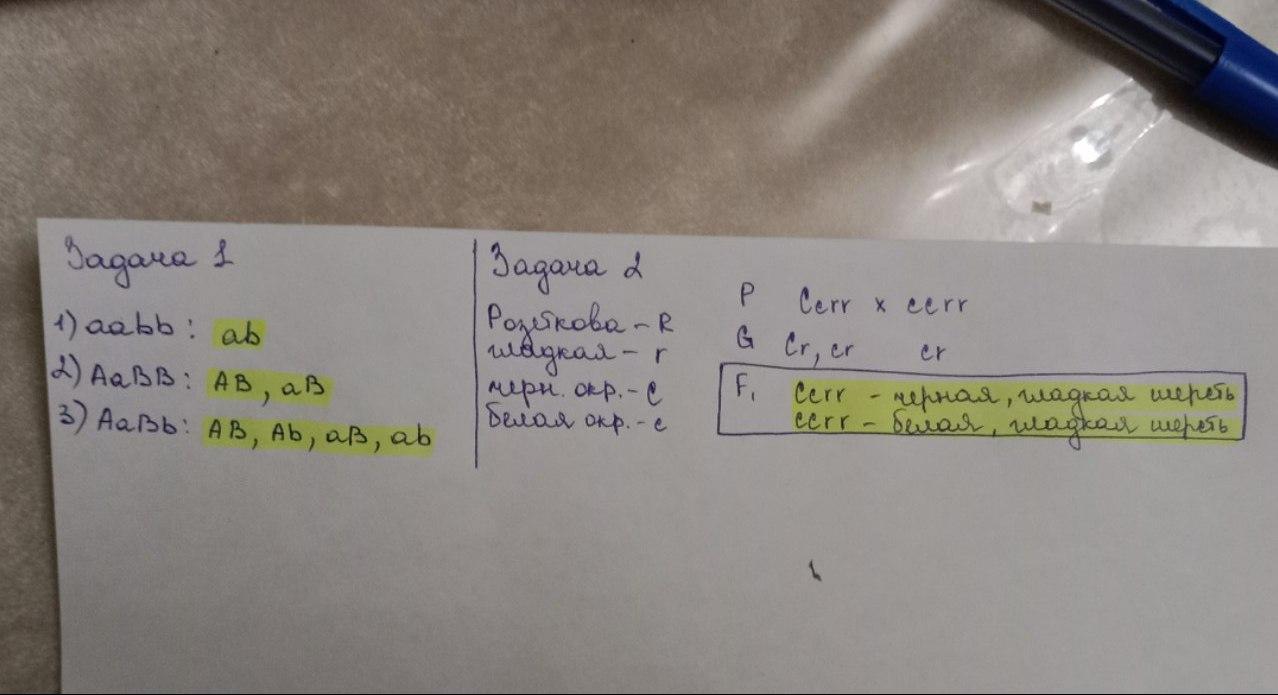 Задача 1
1) aabb: ab
2) AaBB: AB, aB
3) AaBb: AB, Ab, aB, ab
Задача 2
Розеткова - R
гладкая - r
черн. окр. - C
белая окр. - c
P Ccrr x ccrr
G Cr, cr cr
F₁ Ccrr - черная, гладкая шерсть
ccrr - белая, гладкая шерсть